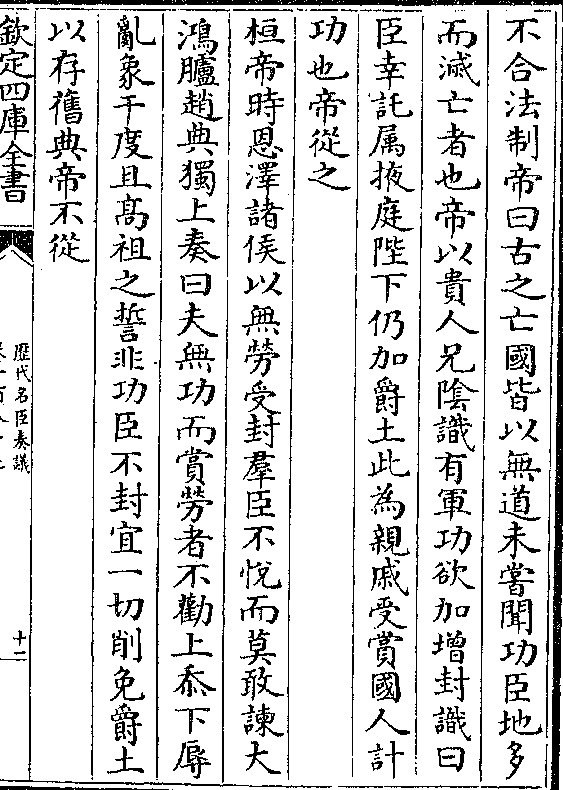 不合法制帝曰古之亡國皆以無道未嘗聞功臣地多
而滅亡者也帝以貴人兄陰識有軍功欲加增封識曰
臣幸託属掖庭陛下仍加爵土此為親戚受賞國人計
功也帝從之
桓帝時恩澤諸侯以無勞受封羣臣不悅而莫敢諫大
鴻臚趙典獨上奏曰夫無功而賞勞者不勸上忝下辱
亂象干度且髙祖之誓非功臣不封宜一切削免爵土
以存舊典帝不從
欽定四庫全書
歷代名臣奏議
十二